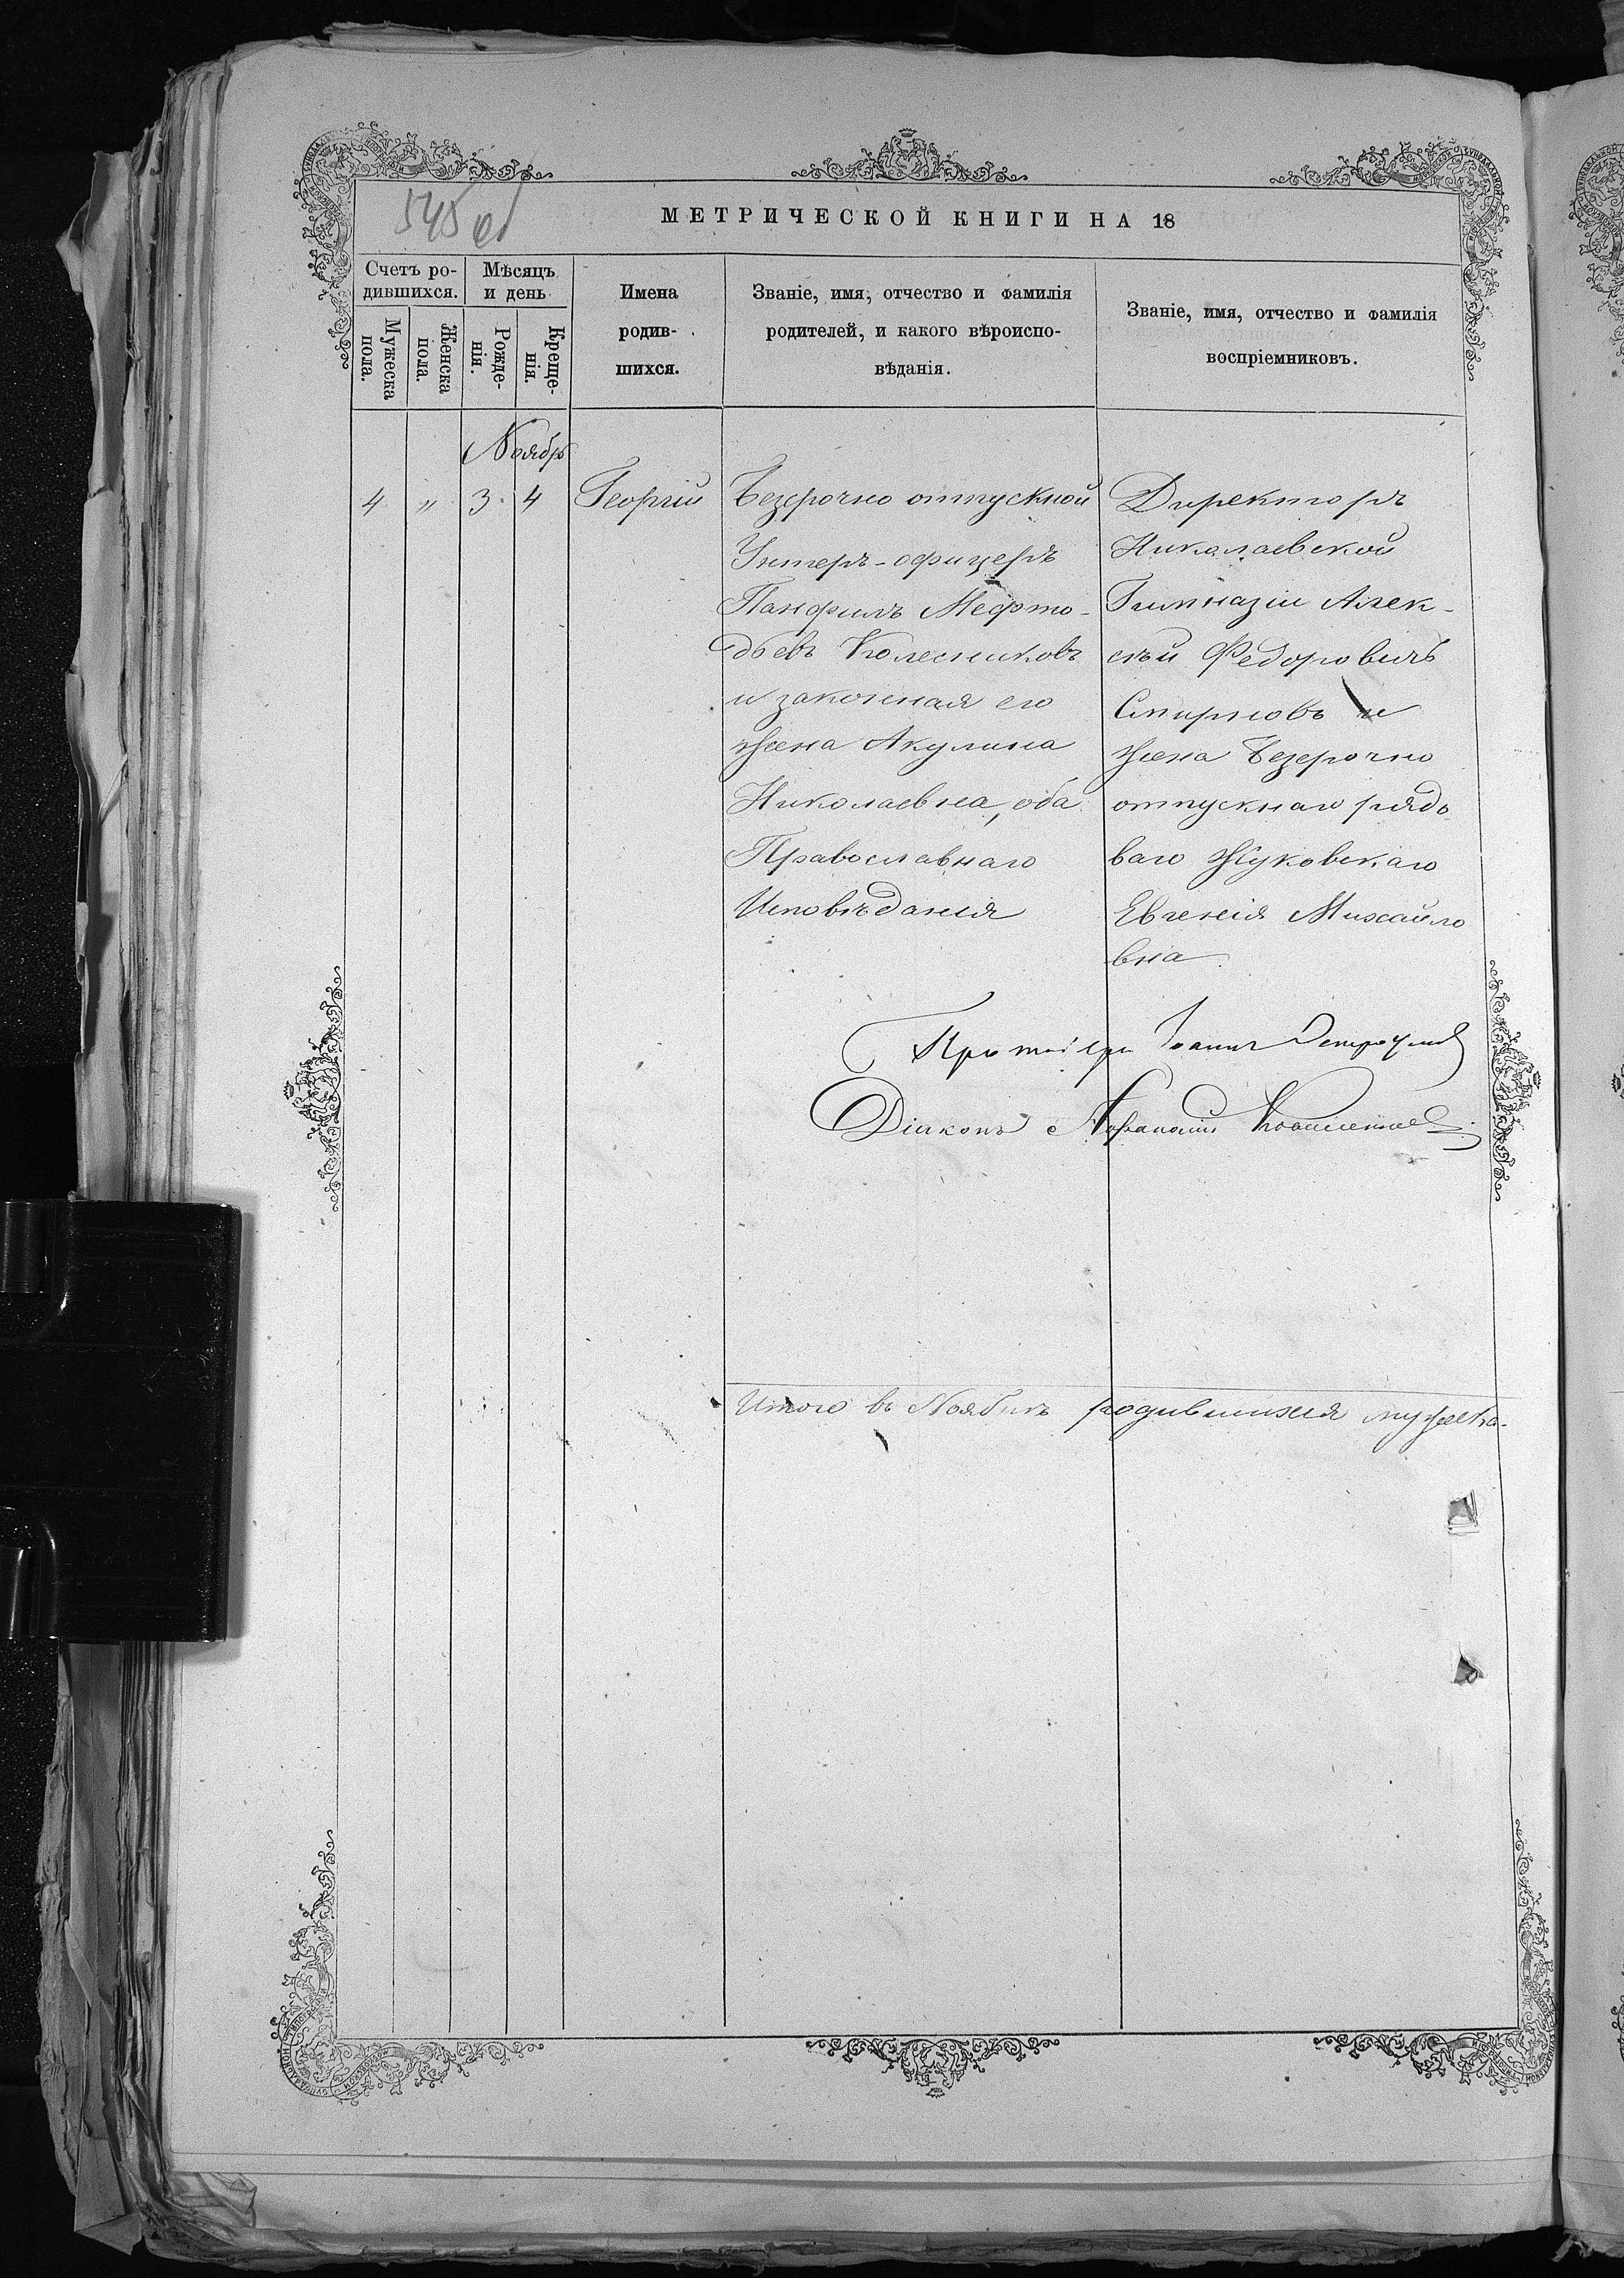 545 об
МЕТРИЧЕСКОЙ КНИГИ НА 18
Счетъ ро-
дившихся.
Мѣсяцъ
и день
Мужеска
пола.
Женска
пола.
Рожде-
нія.
Креще-
нія.
Имена
родив-
шихся.
Званіе, имя, отчество и фамилія
родителей, и какого вѣроиспо-
вѣданія.
Званіе, имя, отчество и фамилія
воспріемниковъ.
Ноябрь
4 " 3 4 Георгій
Безсрочно отпускной
Унтеръ-офицеръ
Панфилъ Мефто-
дьевъ Колесниковъ
и законная его
жена Акулина
Николаевна, оба
Православнаго
Исповѣданія
Директоръ
Николаевской
Гимназіи Алек-
сѣй Федоровичъ
Смирновъ и
жена Безсрочно
отпускнаго рядо
ваго Жуковскаго
Евгенія Михайло
вна.
Протоіерей Іоаннъ
Діаконъ Афанасій
Итого въ Ноябрѣ родившихся мужеска-